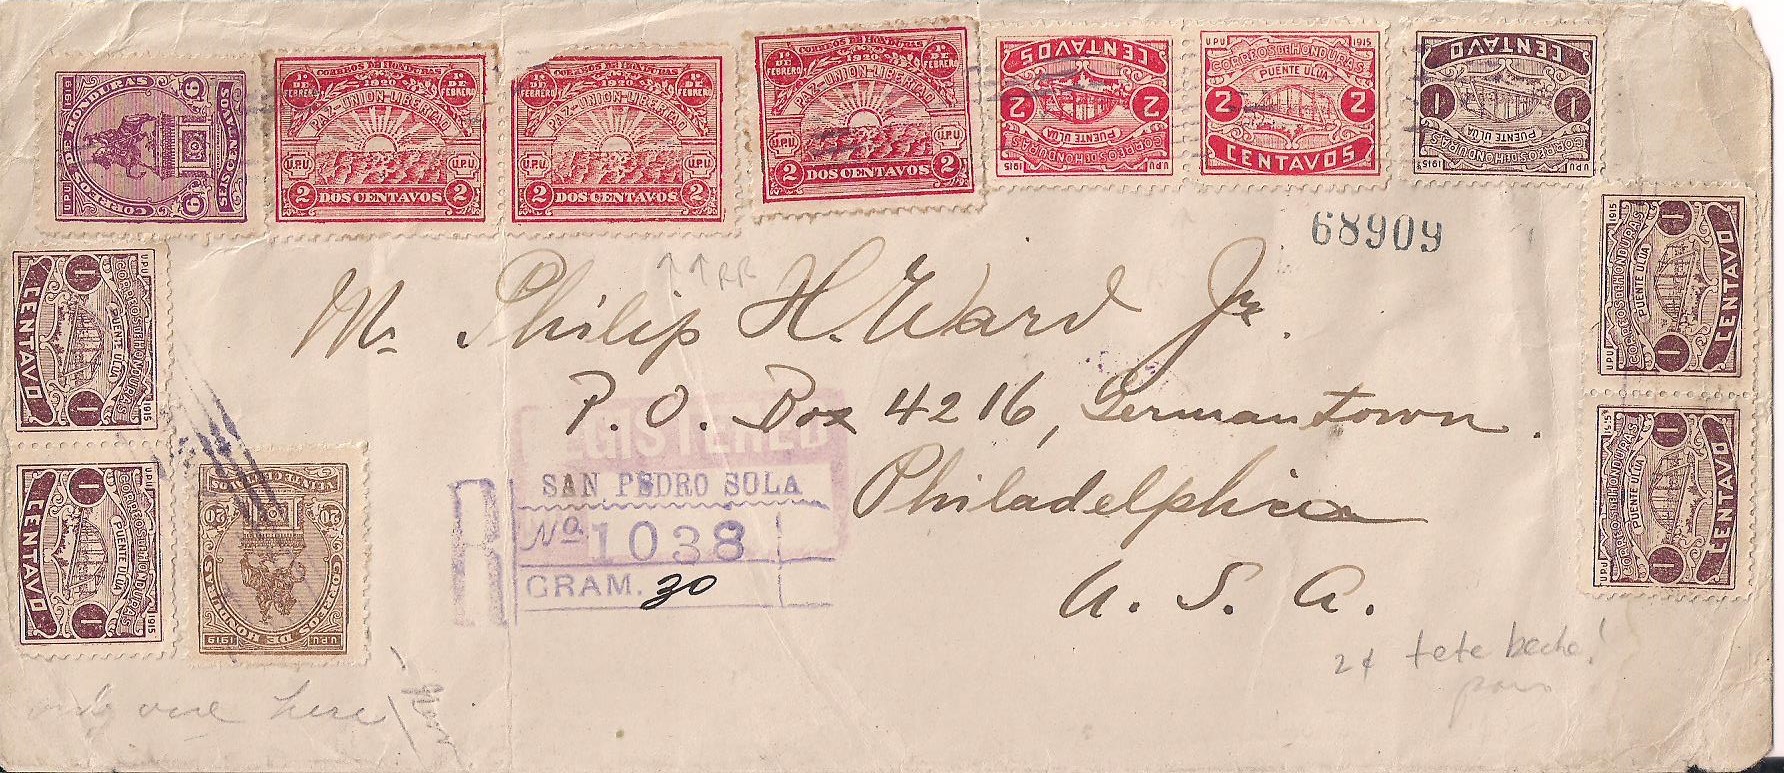 CORREOS DE HONDURAS
U.P.U. 1919
6 6
SEIS CENTAVOS
CORREOS DE HONDURAS
1º DE FEBRERO 1920 1º DE FEBRERO
PAZ-UNION-LIBERTAD
U.P.U. U.P.U.
2 DOS CENTAVOS 2
CORREOS DE HONDURAS
1º DE FEBRERO 1920 1º DE FEBRERO
PAZ-UNION-LIBERTAD
U.P.U. U.P.U.
2 DOS CENTAVOS 2
CORREOS DE HONDURAS
1º DE FEBRERO 1920 1º DE FEBRERO
PAZ-UNION-LIBERTAD
U.P.U. U.P.U.
2 DOS CENTAVOS 2
U.P.U. 1915
CORREOS DE HONDURAS
PUENTE ULUA
2 2
CENTAVOS
U.P.U. 1915
CORREOS DE HONDURAS
PUENTE ULUA
2 2
CENTAVOS
U.P.U. 1915
CORREOS DE HONDURAS
PUENTE ULUA
1 1
CENTAVO
U.P.U. 1915
CORREOS DE HONDURAS
PUENTE ULUA
1 1
CENTAVO
U.P.U. 1915
CORREOS DE HONDURAS
PUENTE ULUA
1 1
CENTAVO
68909
RR
Mr Philip H. Ward Jr.
P.O. Box 4216, Germantown.
Philadelphia
U. S. A.
U.P.U. 1915
CORREOS DE HONDURAS
PUENTE ULUA
1 1
CENTAVO
U.P.U. 1915
CORREOS DE HONDURAS
PUENTE ULUA
1 1
CENTAVO
CORREOS DE HONDURAS
U.P.U. 1919
20 20
VEINTE CENTAVOS
REGISTERED
R SAN PEDRO SULA
No. 1038
GRAM. 30
2¢ tete beche!
pair
here